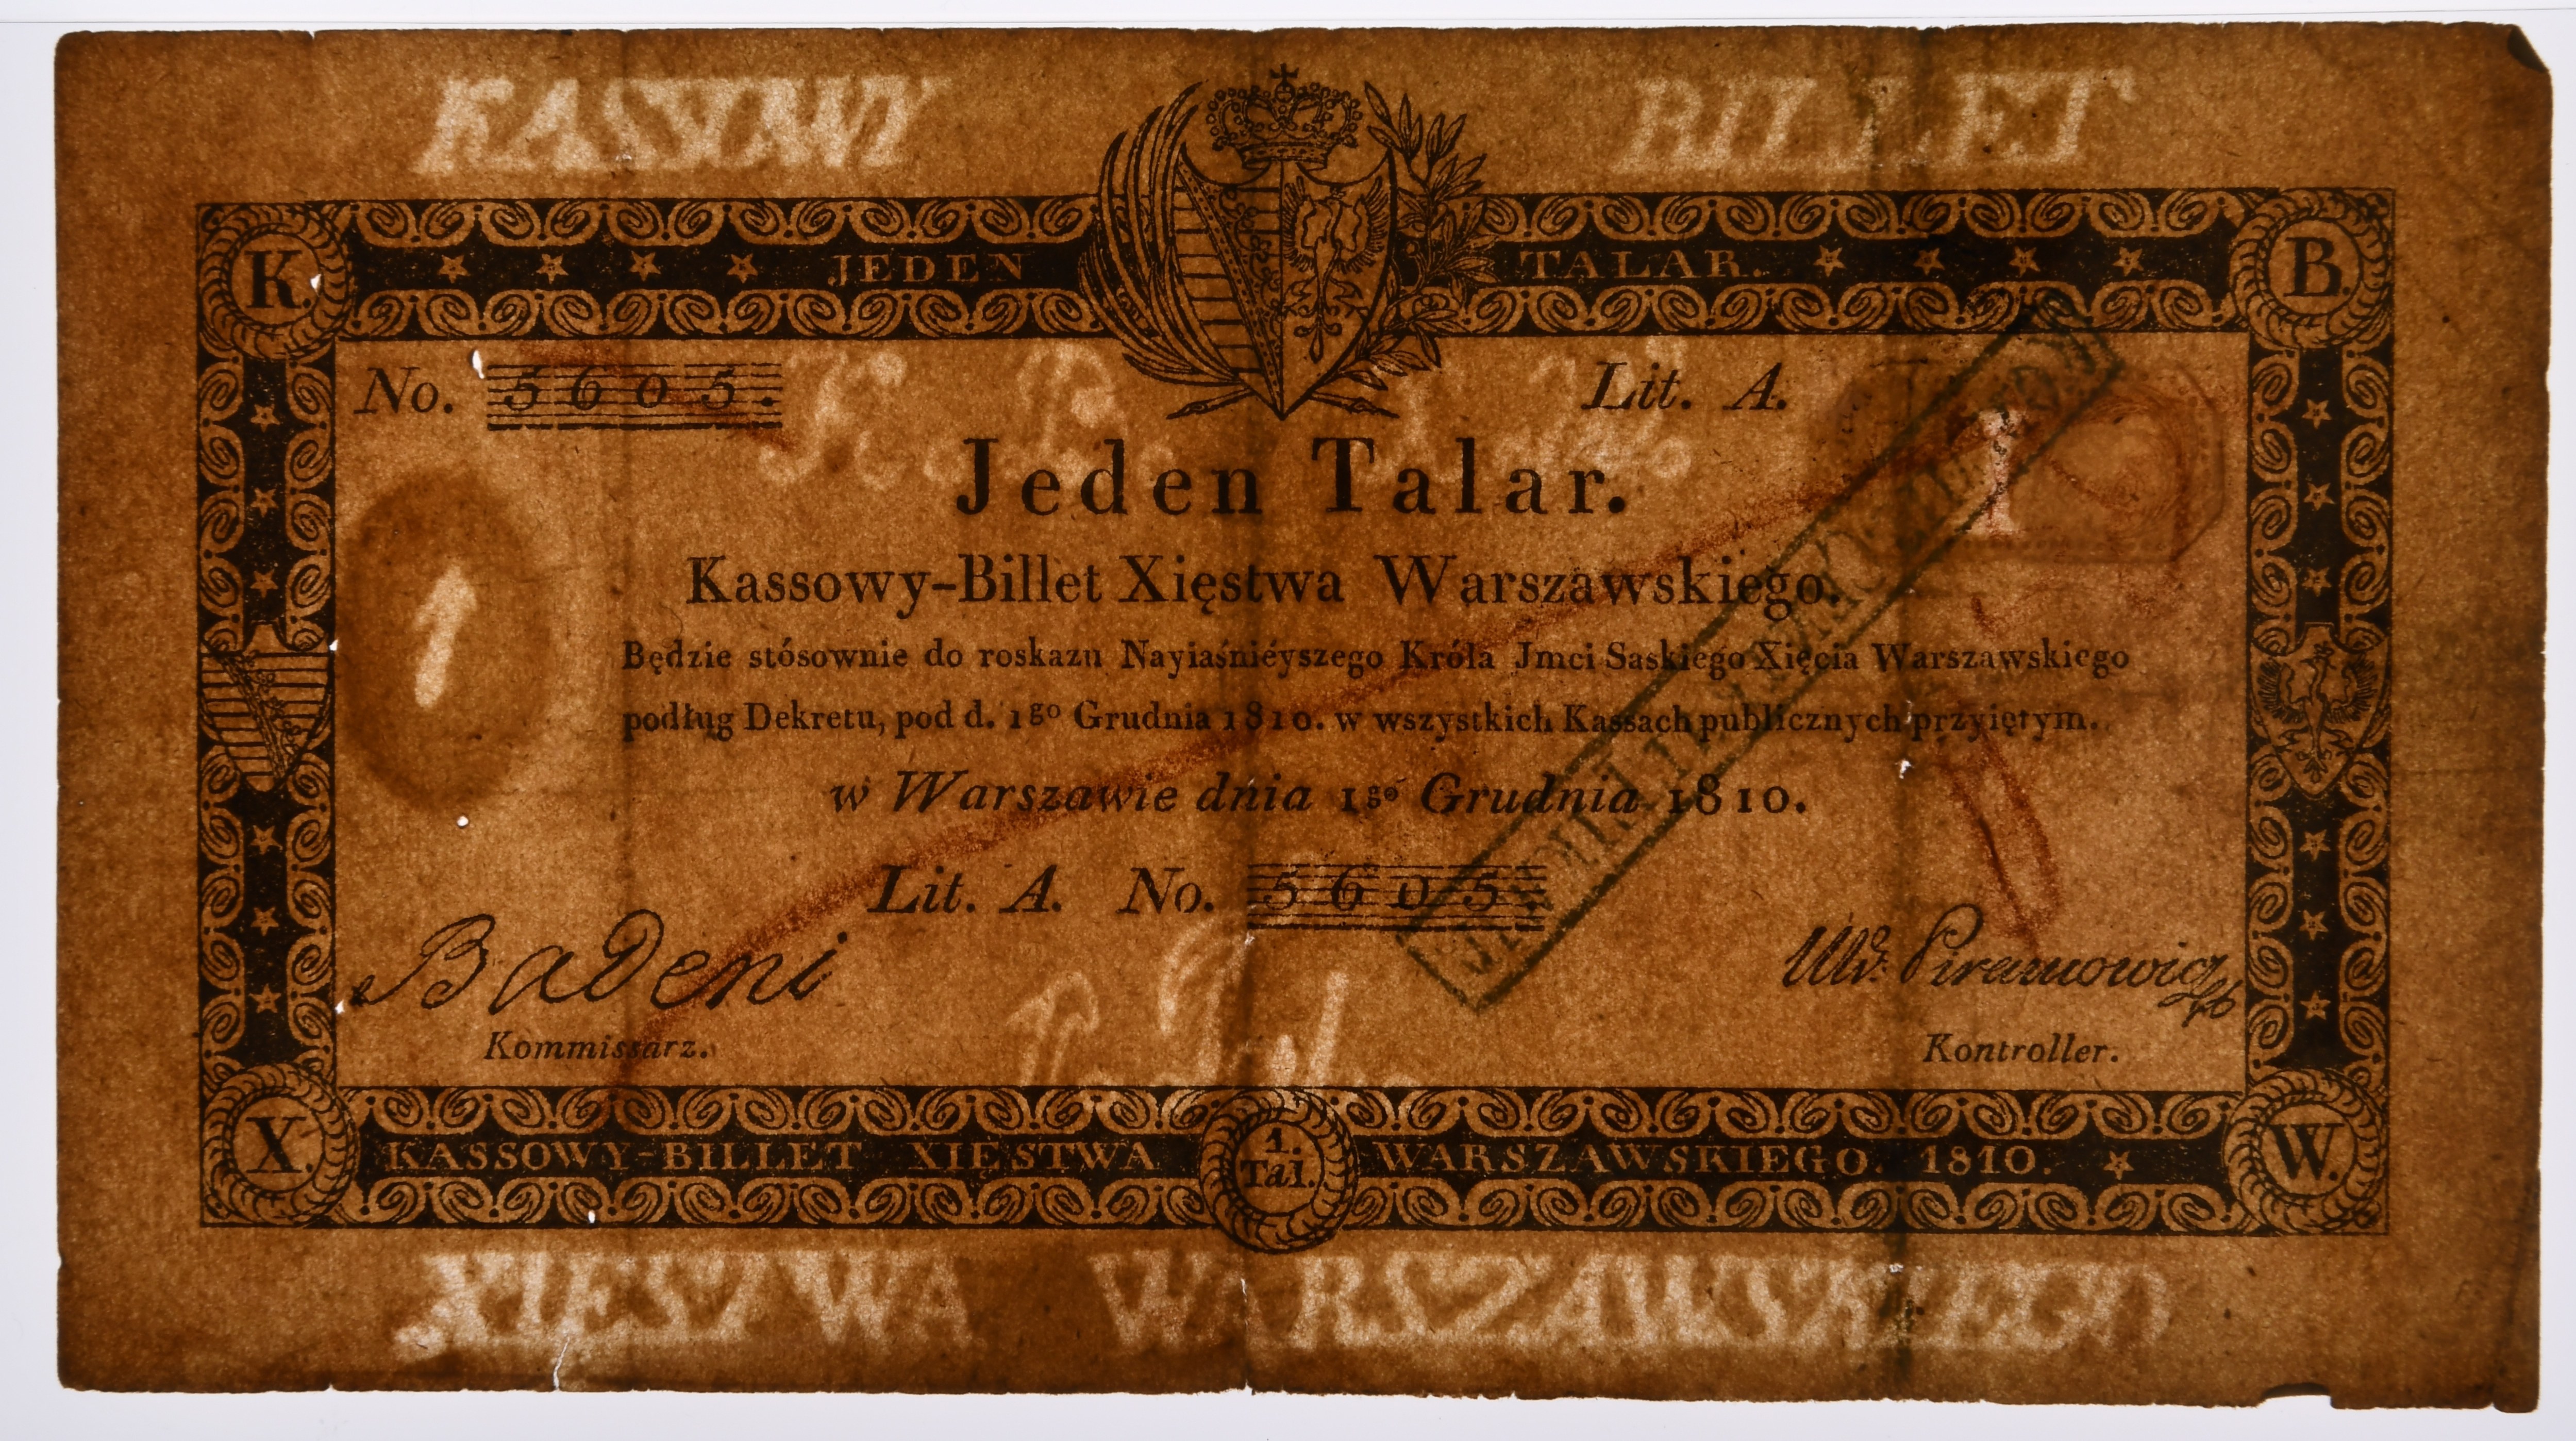 KASSOWY BILLET
K. JEDEN TALAR. B.
No. 5605. Lit. A.
1 1
Jeden Talar.
Kassowy-Billet Xięstwa Warszawskiego.
Będzie stósownie do roskazu Nayiaśniéyszego Króla Jmci Saskiego Xięcia Warszawskiego
podług Dekretu, pod d. 1go Grudnia 1810. w wszystkich Kassach publicznych przyiętym.
w Warszawie dnia 1go Grudnia 1810.
Lit. A. No. 5605.
Badeni
Piramowicz
Kommissarz. Kontroller.
X. KASSOWY-BILLET XIĘSTWA 1. Tal. WARSZAWSKIEGO. 1810. W.
XIESTWA WARSZAWSKIEGO